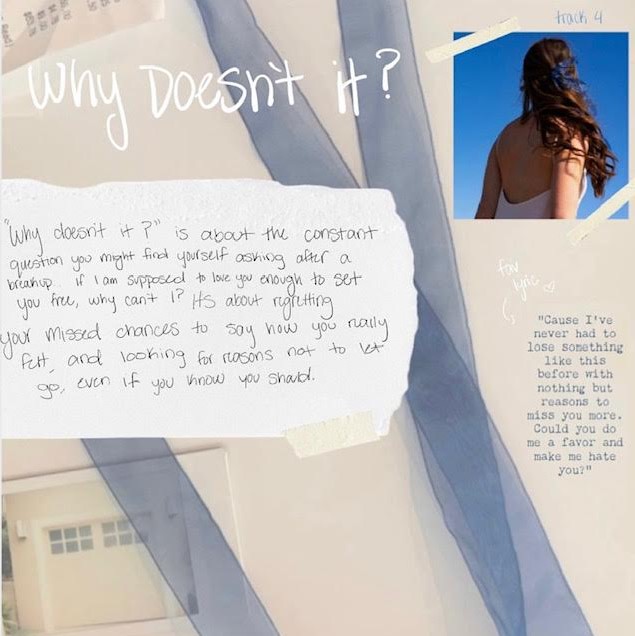 track 4
Why Doesn't it?
"Why doesn't it?" is about the constant
question you might find yourself asking after a
breakup. If I am supposed to love you enough to set
you free, why can't I? Its about regretting
your missed chances to say how you really
felt, and looking for reasons not to let
go, even if you know you should.
fav
lyric
"Cause I've
never had to
lose something
like this
before with
nothing but
reasons to
miss you more.
Could you do
me a favor and
make me hate
you?"